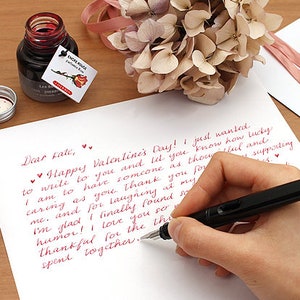 Dear Kate,
Happy Valentine's Day! I just wanted
to write to you and let you know how lucky
I am to have someone as thoughtful and
caring as you. Thank you for supporting
me, and for laughing at my
I'm glad I finally found
humor! I love you so
thankful for the
spent together.